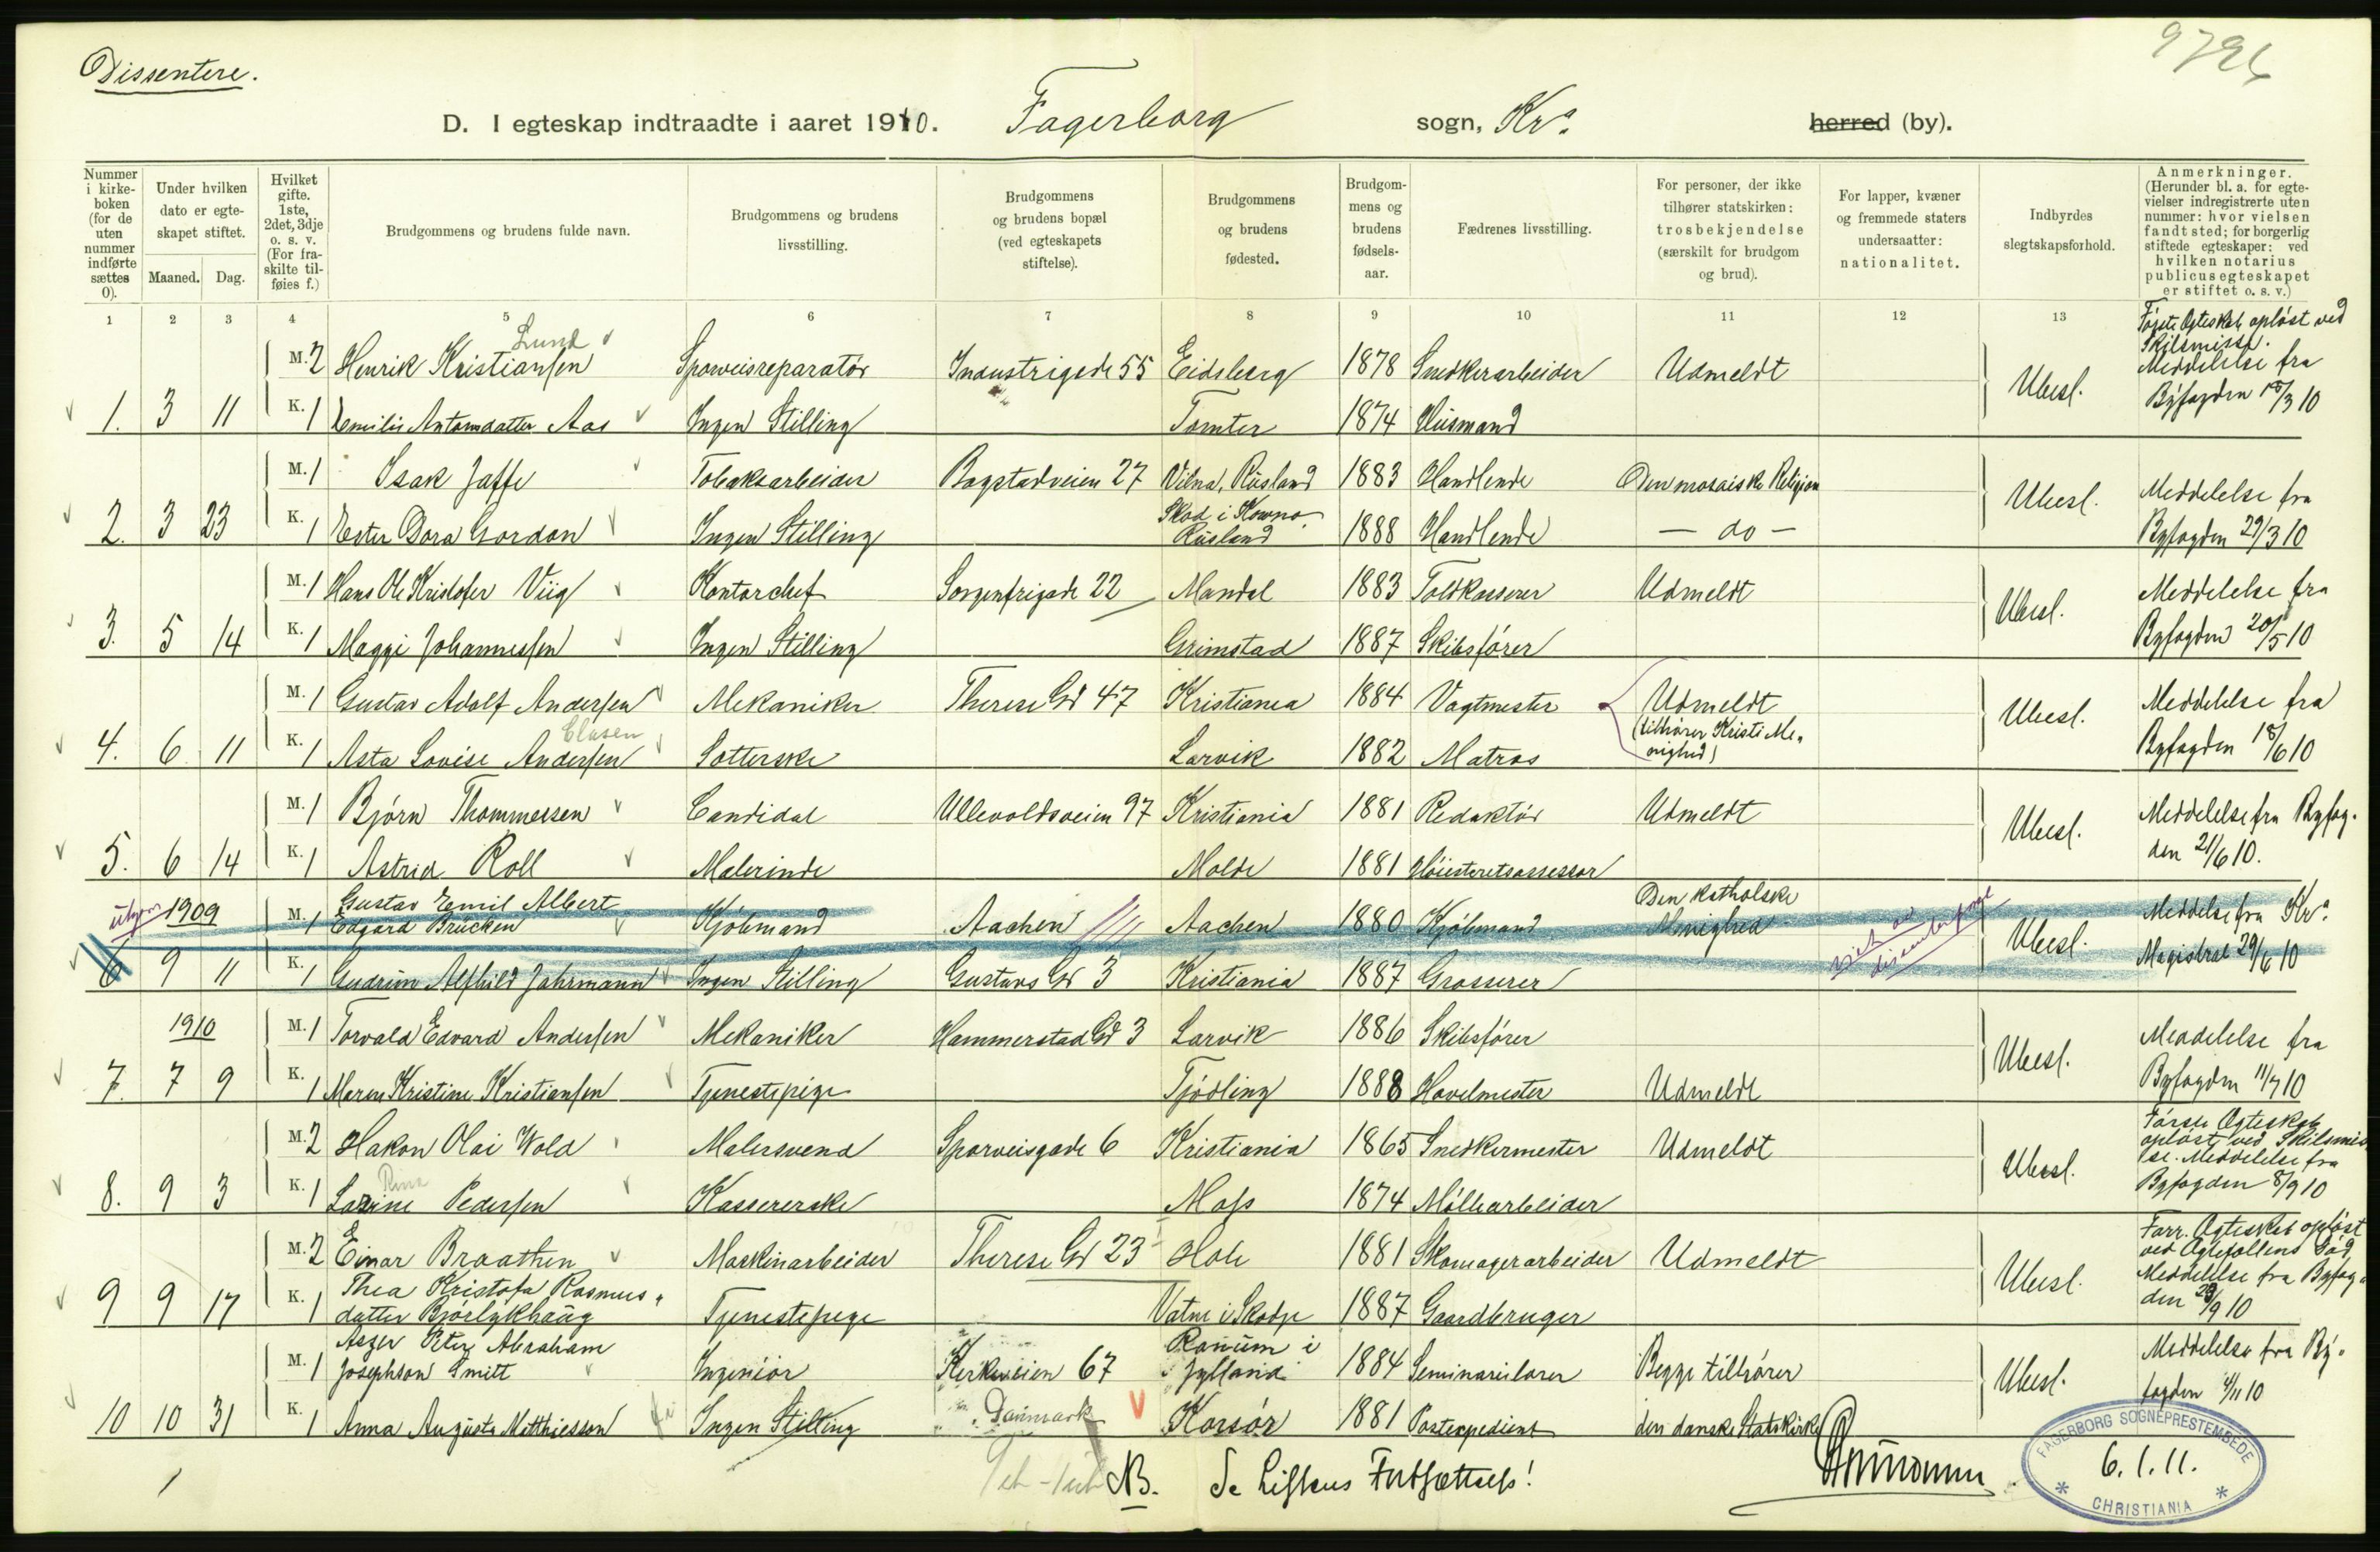 Dissentere.
9796
D. I egteskap indtraadte i aaret 1910. Fagerborg sogn, Kra. herred (by).
Nummer i kirkeboken (for de uten nummer indførte sættes 0).
Under hvilken dato er egteskapet stiftet.
Maaned. Dag.
Hvilket gifte. 1ste, 2det, 3dje o. s. v. (For fraskilte tilføies f.)
Brudgommens og brudens fulde navn.
Brudgommens og brudens livsstilling.
Brudgommens og brudens bopæl (ved egteskapets stiftelse).
Brudgommens og brudens fødested.
Brudgommens og brudens fødselsaar.
Fædrenes livsstilling.
For personer, der ikke tilhører statskirken: trosbekjendelse (særskilt for brudgom og brud).
For lapper, kvæner og fremmede staters undersaatter: nationalitet.
Indbyrdes slegtskapsforhold.
Anmerkninger. (Herunder bl. a. for egtevielser indregistrerte uten nummer: hvor vielsen fandt sted; for borgerlig stiftede egteskaper: ved hvilken notarius publicus egteskapet er stiftet o. s. v.)
1 2 3 4 5 6 7 8 9 10 11 12 13
M. 2 Henrik Kristiansen Lund Sporveisreparatør Industrigade 55 Eidsberg 1878 Snedkerarbeider Udmeldt Ubesl. Første Egteskab opløst ved Skilsmisse. Meddelelse fra Byfogden 18/3 10
1. 3 11 K. 1 Emilie Antonsdatter Aas Ingen Stilling Tomter 1874 Husmand
M. 1 Isak Jaffe Tobaksarbeider Bogstadveien 27 Vilna, Rusland 1883 Handlende Den mosaiske Religion Ubesl. Meddelelse fra
2. 3 23 K. 1 Ester Dora Gordon Ingen Stilling Skod i Kowno Rusland 1888 Handlende — do — Byfogden 29/3 10
M. 1 Hans Ole Kristofer Viig Kontorchef Sorgenfrigade 22 Mandal 1883 Toldkasserer Udmeldt Ubesl. Meddelelse fra
3. 5 14 K. 1 Maggi Johannessen Ingen Stilling Grimstad 1887 Skibsfører Byfogden 20/5 10
M. 1 Gustav Adolf Andersen Mekaniker Therese Gd 47 Kristiania 1884 Vagtmester Udmeldt (tilhører Kristi Menighed) Ubesl. Meddelelse fra
4. 6 11 K. 1 Asta Lovise Andersen Clasen Sætterske Larvik 1882 Matros Byfogden 18/6 10
M. 1 Bjørn Thommessen Candidat Ullevoldsveien 97 Kristiania 1881 Redaktør Udmeldt Ubesl. Meddelelse fra Byfog-
5. 6 14 K. 1 Astrid Roll Malerinde Molde 1881 Høiesteretsassessor den 21/6 10.
1909 M. 1 Gustav Emil Albert Edgard Brücken Kjøbmand Aachen Aachen 1880 Kjøbmand Den katholske Menighed Ubesl. Meddelse fra Kra.
6 9 11 K. 1 Gudrun Alfhild Jahrmann Ingen Stilling Gustavs Gd 3 Kristiania 1887 Grosserer Magistrat 29/6 10
1910 M. 1 Torvald Edvard Andersen Mekaniker Hammerstad Gd 3 Larvik 1886 Skibsfører Ubesl. Meddelelse fra
7. 7 9 K. 1 Maren Kristine Kristiansen Tjenestepige Tjødling 1888 Havelmester Udmeldt Byfogden 11/7 10
M. 2 Hakon Olai Wold Malersvend Sporveisgade 6 Kristiania 1865 Snedkermester Udmeldt Ubesl. Første Egteskab opløst ved Skilsmisse. Meddelelse fra
8. 9 3 K. 1 Lazine Pedersen Kassererske Moss 1874 Møllearbeider Byfogden 8/9 10
M. 2 Einar Braathen Maskinarbeider Therese Gd 23 Hole 1881 Skomagerarbeider Udmeldt Ubesl. Forr. Egteskab opløst ved Egtefællens Død, Meddelelse fra Byfog-
9 9 17 K. 1 Thea Kristofa Rasmusdatter Bjørlykhaug Tjenestepige Vatne i Skodje 1887 Gaardbruger den 23/9 10
M. 1 Asger Peter Abraham Josephson Smitt Ingeniør Kirkeveien 67 Ranum i Jylland 1884 Seminarielærer Begge tilhører Ubesl. Meddelelse fra By-
10 10 31 K. 1 Anna Augusta Matthiesson Ingen Stilling Danmark Korsør 1881 Postexpedient den danske Statskirke fogden 4/11 10
NB. Se Listens Fortsættelse!
FAGERBORG SOGNEPRESTEMBEDE
6.1.11.
CHRISTIANIA